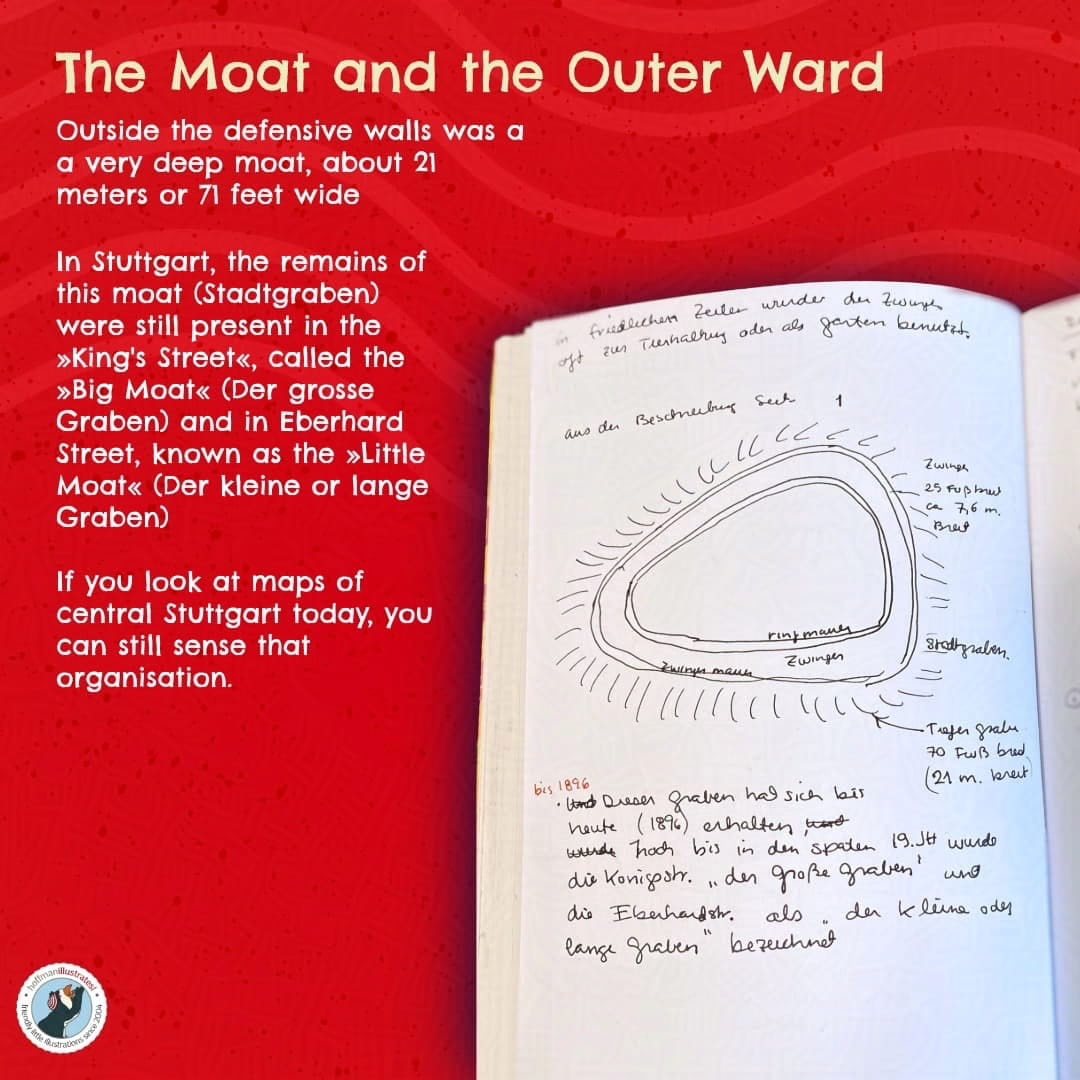 The Moat and the Outer Ward
Outside the defensive walls was a
a very deep moat, about 21
meters or 71 feet wide
In Stuttgart, the remains of
this moat (Stadtgraben)
were still present in the
»King's Street«, called the
»Big Moat« (Der grosse
Graben) and in Eberhard
Street, known as the »Little
Moat« (Der kleine or lange
Graben)
If you look at maps of
central Stuttgart today, you
can still sense that
organisation.
in friedlichen Zeiten wurde der Zwinger
oft zur Tierhaltung oder als garten benutzt.
aus der Beschreibung 1
Zwinger
25 Fuß breit
ca 7,6 m.
Breit
ringmauer
Zwinger
Zwinger mauer
Stadtgraben.
Tiefer graben
70 Fuß breit
(21 m. breit)
bis 1896
Und Dieser graben hat sich bis
heute (1896) erhalten, und
wurde noch bis in den späten 19. JH wurde
die Königstr. „der große graben" und
die Eberhardstr. als „der kleine oder
lange graben" bezeichnet
hoffmanillustrates!
friendly little illustrations since 2004